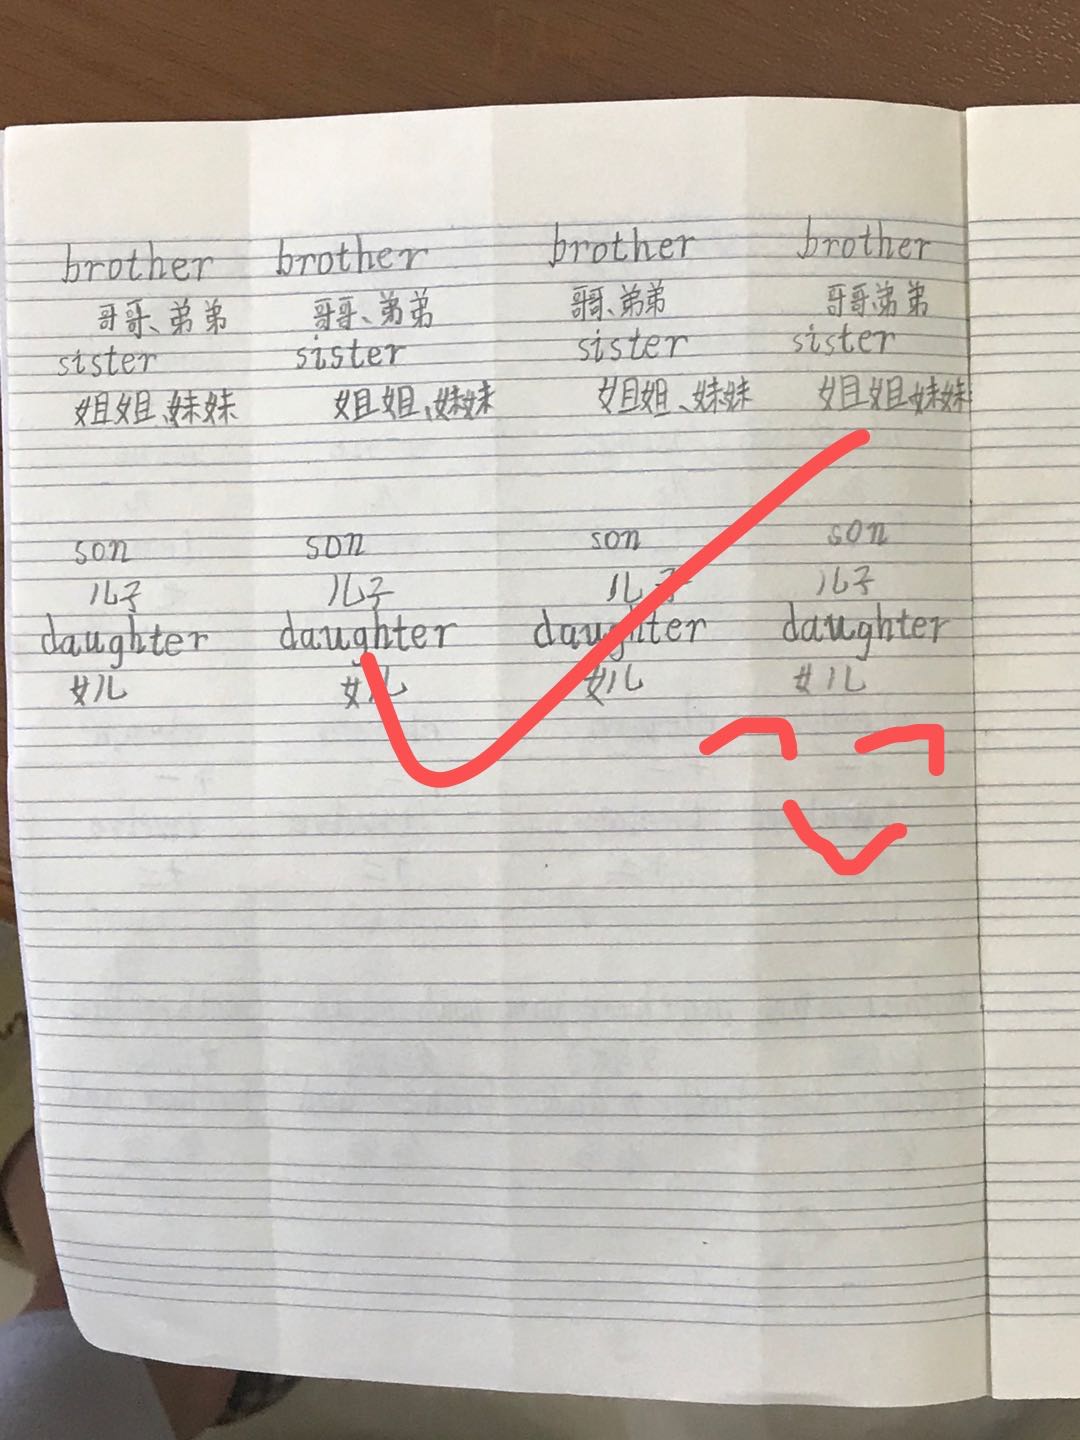 brother brother brother brother
哥哥、弟弟 哥哥、弟弟 哥哥、弟弟 哥哥、弟弟
sister sister sister sister
姐姐、妹妹 姐姐、妹妹 姐姐、妹妹 姐姐妹妹
son son son son
儿子 儿子 儿子 儿子
daughter daughter daughter daughter
女儿 女儿 女儿 女儿